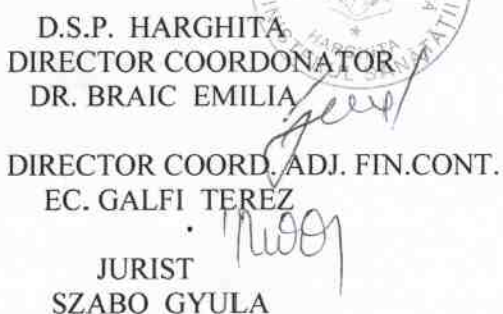 D.S.P. HARGHITA
DIRECTOR COORDONATOR
DR. BRAIC EMILIA
DIRECTOR COORD. ADJ. FIN.CONT.
EC. GALFI TEREZ
JURIST
SZABO GYULA
HARGHITA